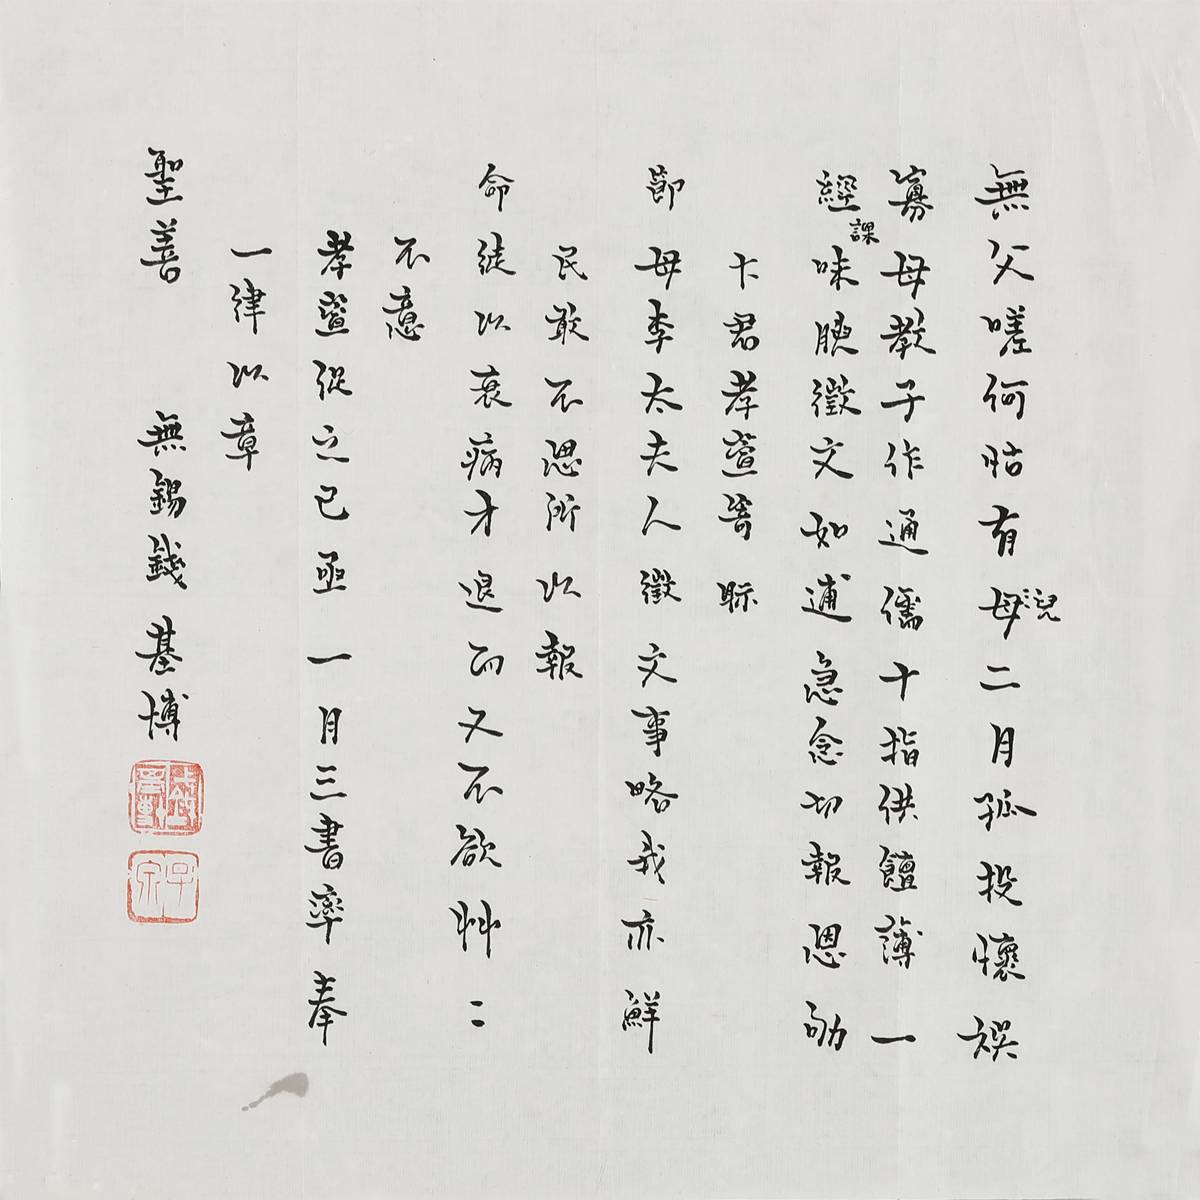 無父嗟何怙有母況二月孤投懷娛
寡母教子作通儒十指供饘薄一
經課味腴徵文如逋急念切報恩劬
卞君孝萱寄眎
節母李太夫人徵文事略我亦鮮
民敢不思所以報
命徒以衰病才退而又不欲艸二
不意
孝萱促之已亟一月三書率奉
一律以章
聖善 無錫錢基博